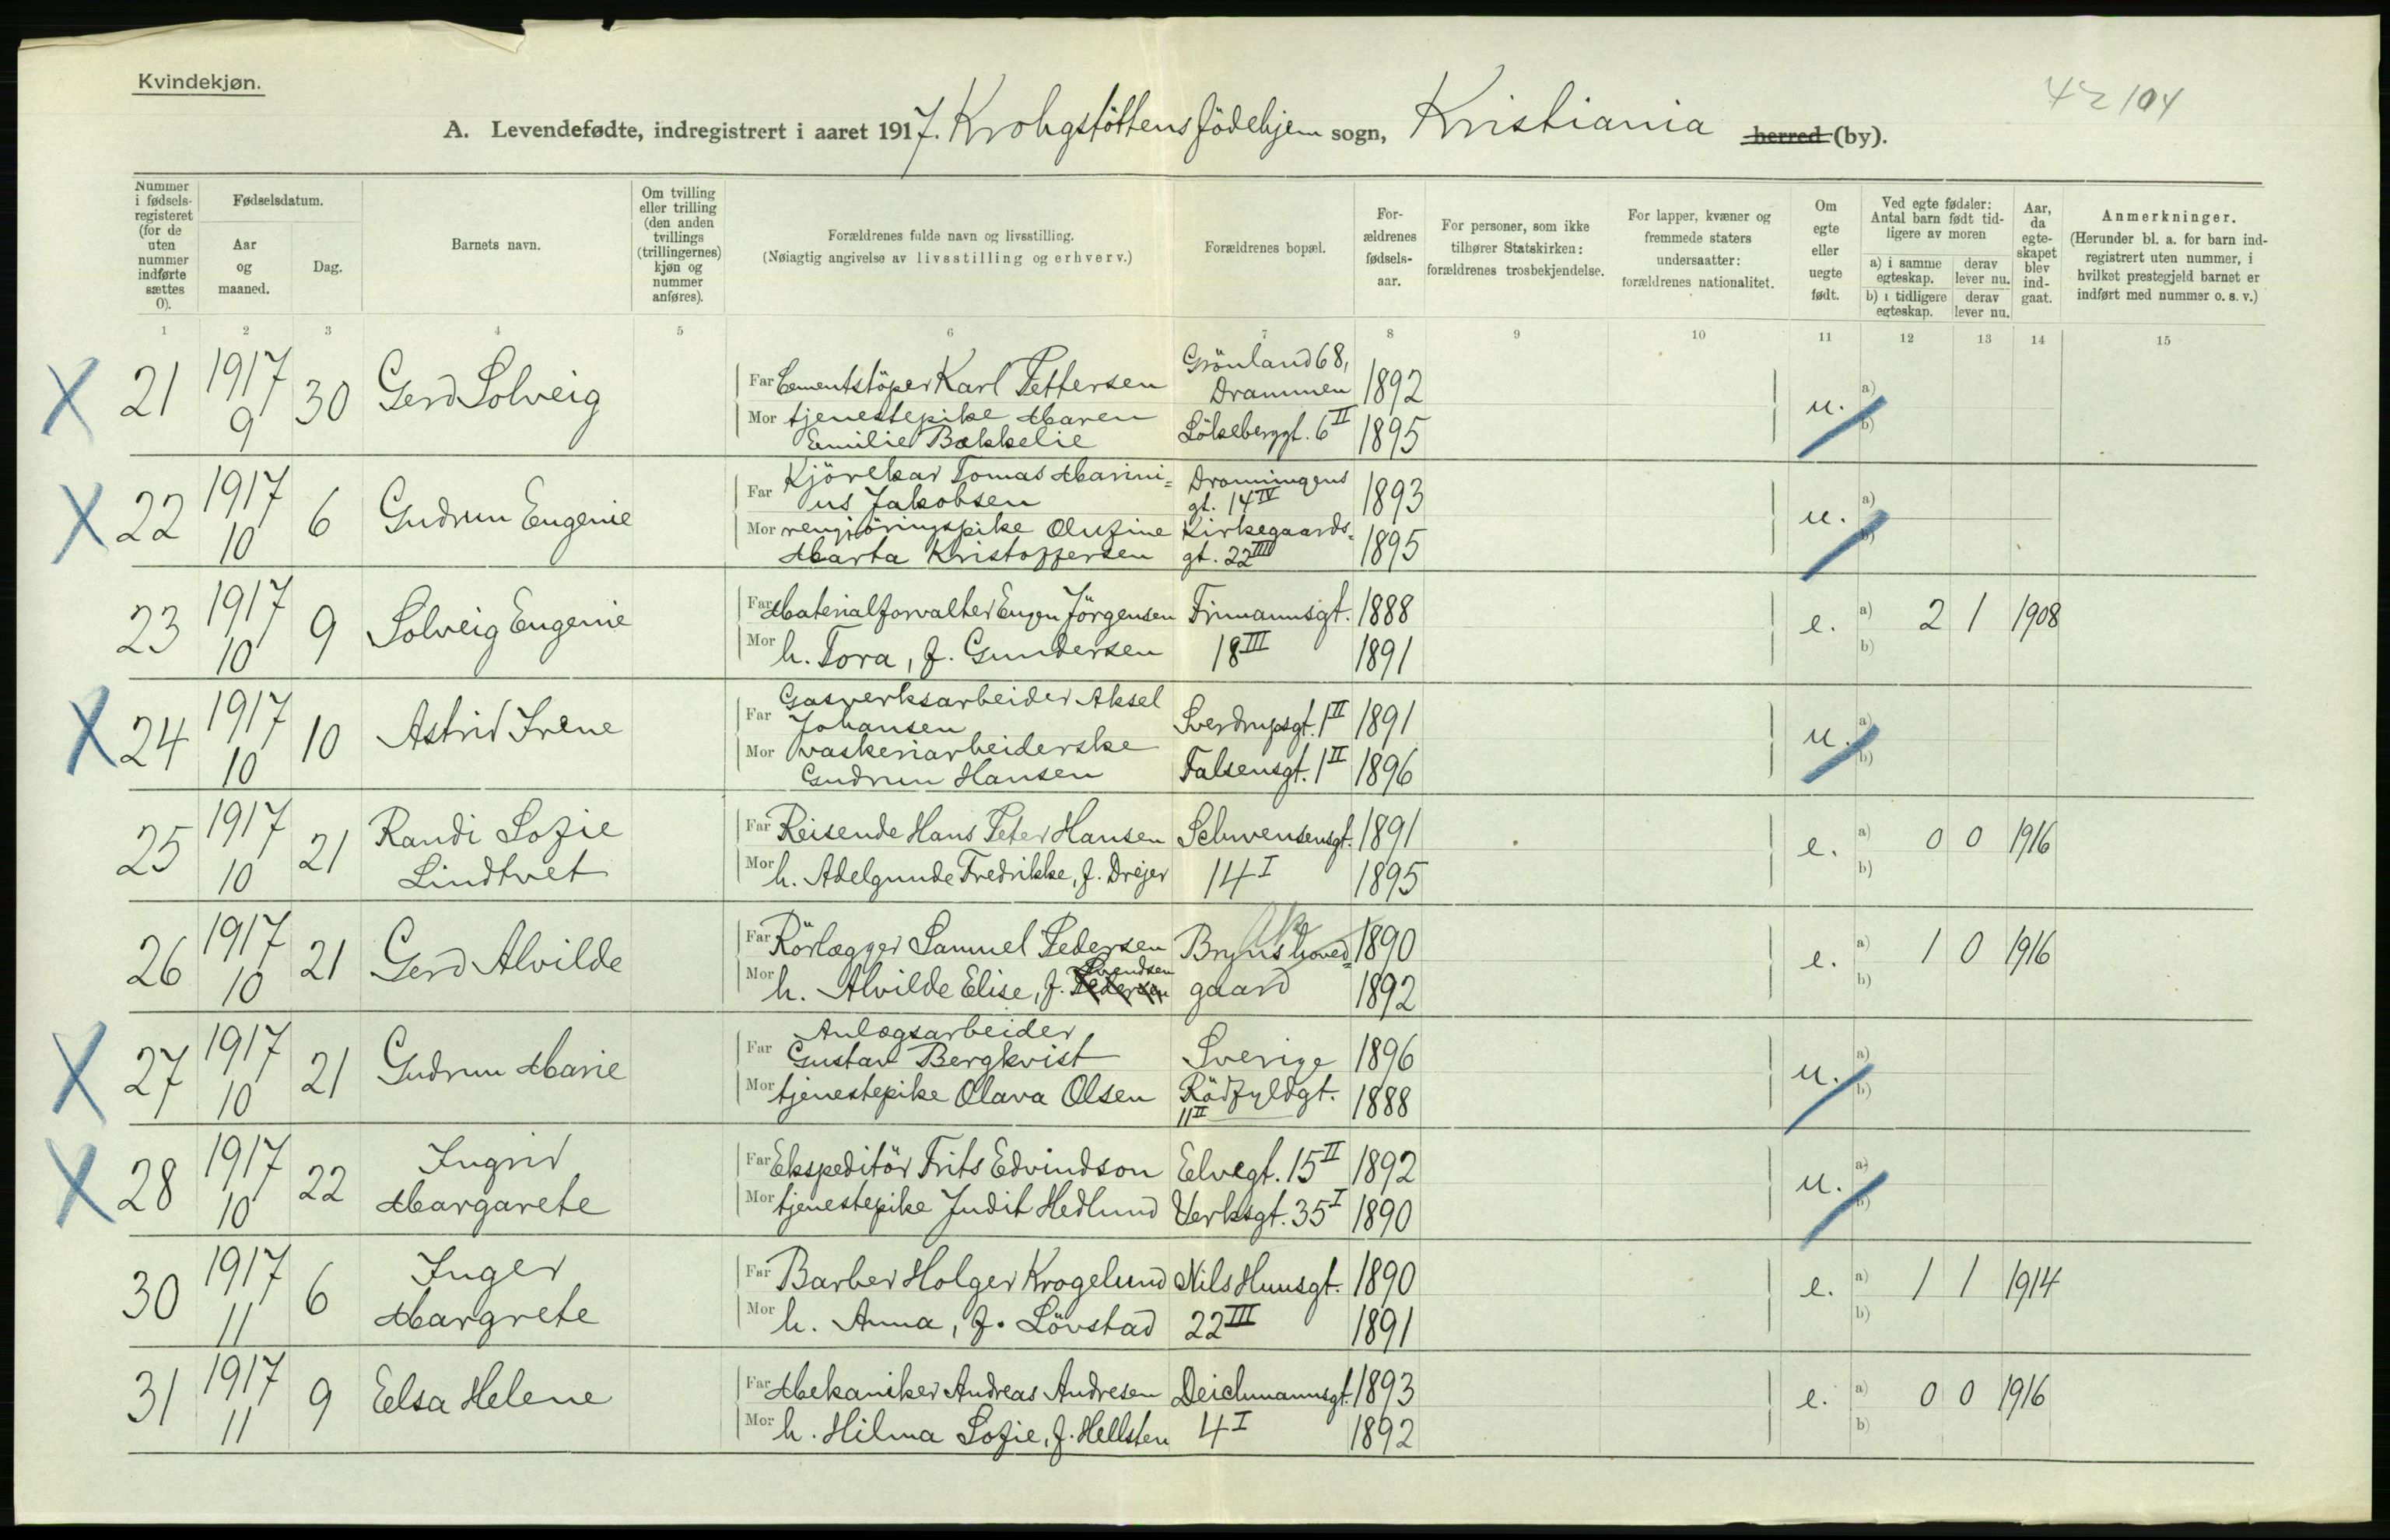 Kvindekjøn.
42 104
A. Levendefødte, indregistrert i aaret 1917. Krohgstöttens födehjem sogn, Kristiania herred (by).
Nummer i fødsels-registeret (for de uten nummer indførte sættes 0).
Fødselsdatum.
Aar og maaned.
Dag.
Barnets navn.
Om tvilling eller trilling (den anden tvillings (trillingernes) kjøn og nummer anføres).
Forældrenes fulde navn og livsstilling.
(Nøiagtig angivelse av livsstilling og erhverv.)
Forældrenes bopæl.
For-ældrenes fødsels-aar.
For personer, som ikke tilhører Statskirken: forældrenes trosbekjendelse.
For lapper, kvæner og fremmede staters undersaatter: forældrenes nationalitet.
Om egte eller uegte født.
Ved egte fødsler: Antal barn født tid-ligere av moren
a) i samme egteskap. derav lever nu.
b) i tidligere egteskap. derav lever nu.
Aar, da egte-skapet blev ind-gaat.
Anmerkninger.
(Herunder bl. a. for barn ind-registrert uten nummer, i hvilket prestegjeld barnet er indført med nummer o. s. v.)
1 2 3 4 5 6 7 8 9 10 11 12 13 14 15
X 21 1917 9 30 Gerd Solveig
Far Cementstöper Karl Pettersen Grönland 68, Drammen 1892
Mor tjenestepike Maren Emilie Bækkelie Lökkeberggt. 6 II 1895
u. a) b)
X 22 1917 10 6 Gudrun Eugenie
Far Kjörekar Tomas Marini=us Jakobsen Dronningens gt. 14 IV 1893
Mor rengjöringspike Olufine Marta Kristoffersen Kirkegaards=gt. 22 III 1895
u. a) b)
23 1917 10 9 Solveig Eugenie
Far Materialforvalter Eugen Jörgensen Finmannsgt. 1888
Mor h. Tora, f. Gundersen 18 III 1891
e. a) 2 1 1908 b)
X 24 1917 10 10 Astrid Irene
Far Gasverksarbeider Aksel Johansen Sverdrupsgt. 1 II 1891
Mor vaskeriarbeiderske Gudrun Hansen Falsensgt. 1 II 1896
u. a) b)
25 1917 10 21 Randi Sofie Lindtvet
Far Reisende Hans Peter Hansen Schwensensgt. 1891
Mor h. Adelgunde Fredrikke, f. Drejer 14 I 1895
e. a) 0 0 1916 b)
26 1917 10 21 Gerd Alvilde
Far Rörlægger Samuel Pedersen Bryns hoved= 1890
Mor h. Alvilde Elise, f. Pedersen Svendsen gaard 1892
e. a) 1 0 1916 b)
X 27 1917 10 21 Gudrun Marie
Far Anlægsarbeider Gustav Bergkvist Sverige 1896
Mor tjenestepike Olava Olsen Rödfyldgt. 11 II 1888
u. a) b)
X 28 1917 10 22 Ingrid Margarete
Far Ekspeditör Frits Edvindson Elvegt. 15 II 1892
Mor tjenestepike Judit Hedlund Verksgt. 35 I 1890
u. a) b)
30 1917 11 6 Inger Margrete
Far Barber Holger Krogelund Nils Huusgt. 1890
Mor h. Anna, f. Lövstad 22 III 1891
e. a) 1 1 1914 b)
31 1917 11 9 Elsa Helene
Far Mekaniker Andreas Andresen Deichmannsgt. 1893
Mor h. Hilma Sofie, f. Hellsten 4 I 1892
e. a) 0 0 1916 b)